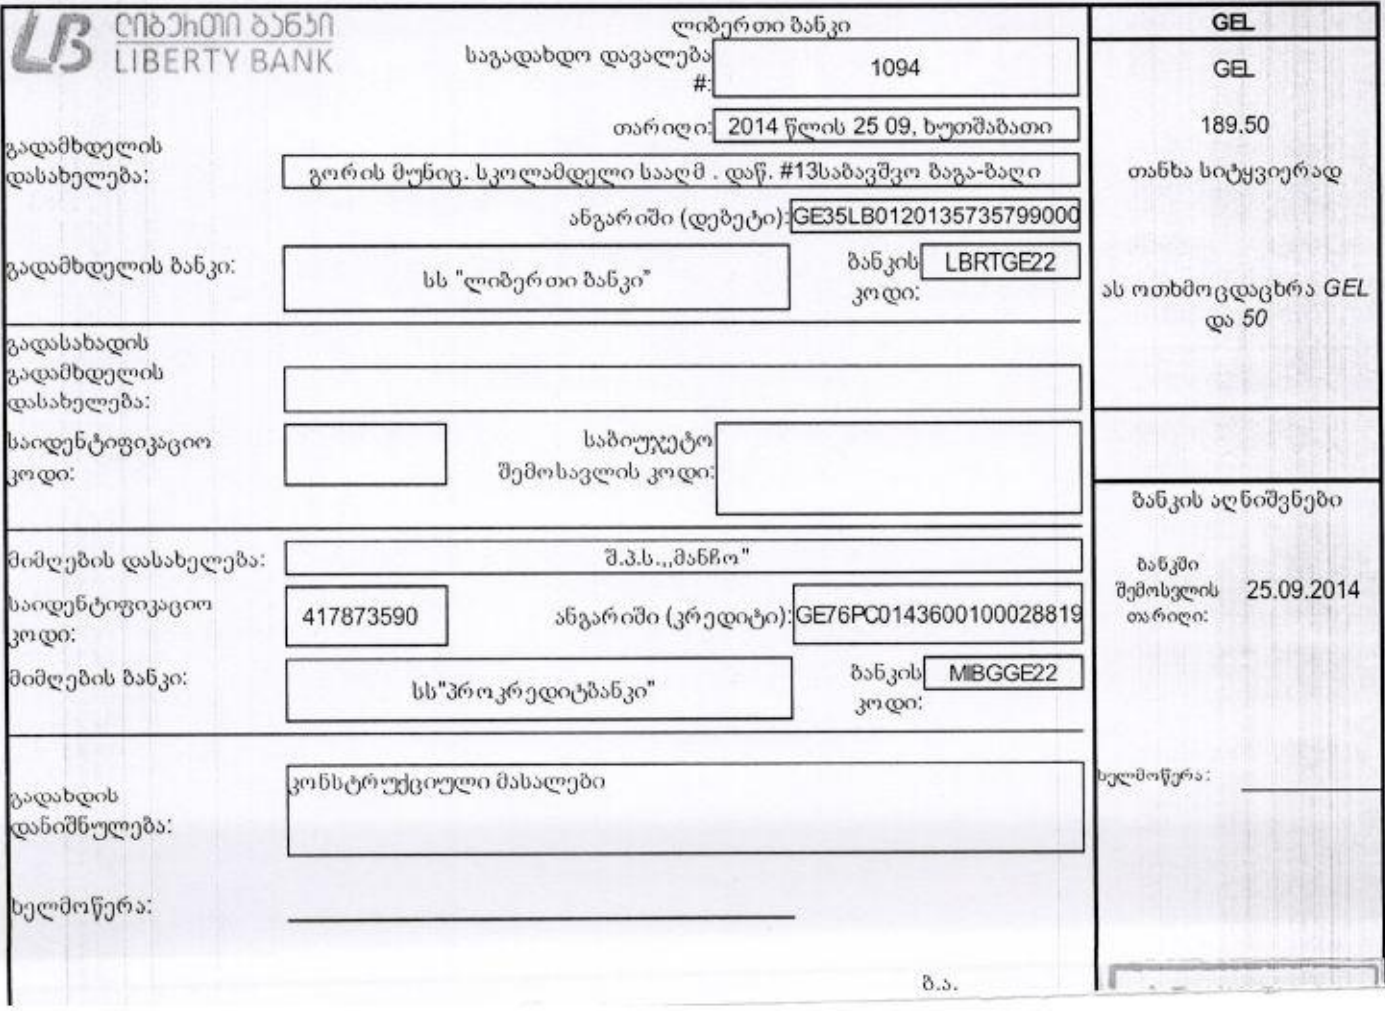 ლიბერთი ბანკი
LIBERTY BANK
ლიბერთი ბანკი
საგადახდო დავალება #: 1094
თარიღი: 2014 წლის 25 09, ხუთშაბათი
გადამხდელის დასახელება: გორის მუნიც. სკოლამდელი სააღმ . დაწ. #13საბავშვო ბაგა-ბაღი
ანგარიში (დებეტი): GE35LB0120135735799000
გადამხდელის ბანკი: სს "ლიბერთი ბანკი"
ბანკის კოდი: LBRTGE22
გადასახადის გადამხდელის დასახელება:
საიდენტიფიკაციო კოდი:
საბიუჯეტო შემოსავლის კოდი:
მიმღების დასახელება: შ.პ.ს.,,მანჩო"
საიდენტიფიკაციო კოდი: 417873590
ანგარიში (კრედიტი): GE76PC0143600100028819
მიმღების ბანკი: სს"პროკრედიტბანკი"
ბანკის კოდი: MIBGGE22
გადახდის დანიშნულება: კონსტრუქციული მასალები
ხელმოწერა:
ბ.ა.
GEL
GEL
189.50
თანხა სიტყვიერად
ას ოთხმოცდაცხრა GEL
და 50
ბანკის აღნიშვნები
ბანკში შემოსვლის თარიღი: 25.09.2014
ხელმოწერა: